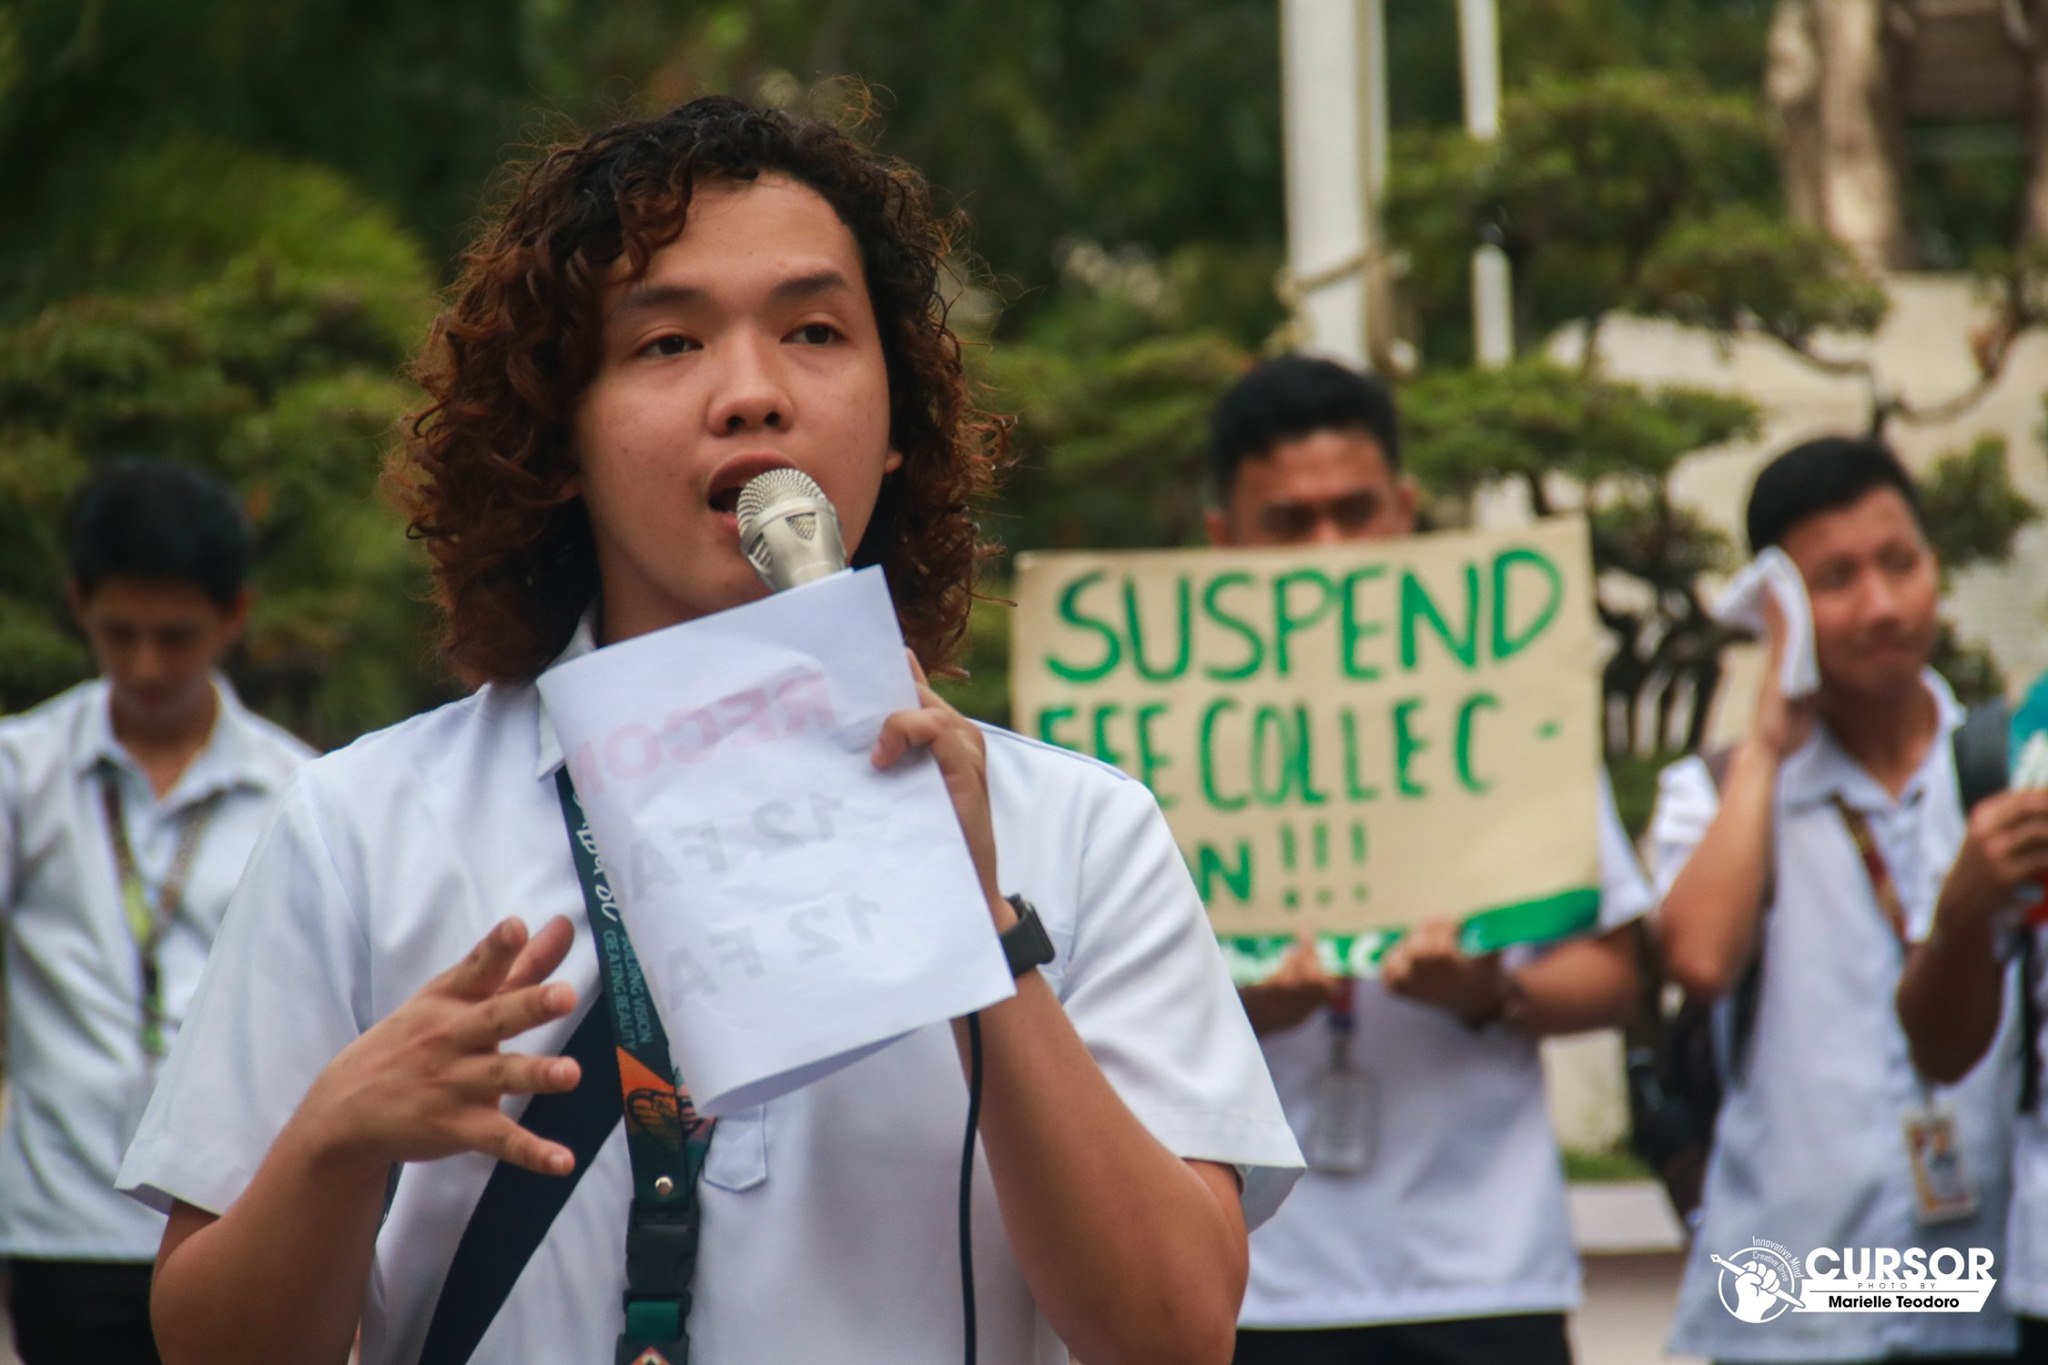 SUSPEND
FEE COLLEC -
N!!!
BUILDING VISION
CREATING REALITY
RECO
12 FA
12 FA
Innovative Mind
Creative Drive
CURSOR
PHOTO BY
Marielle Teodoro